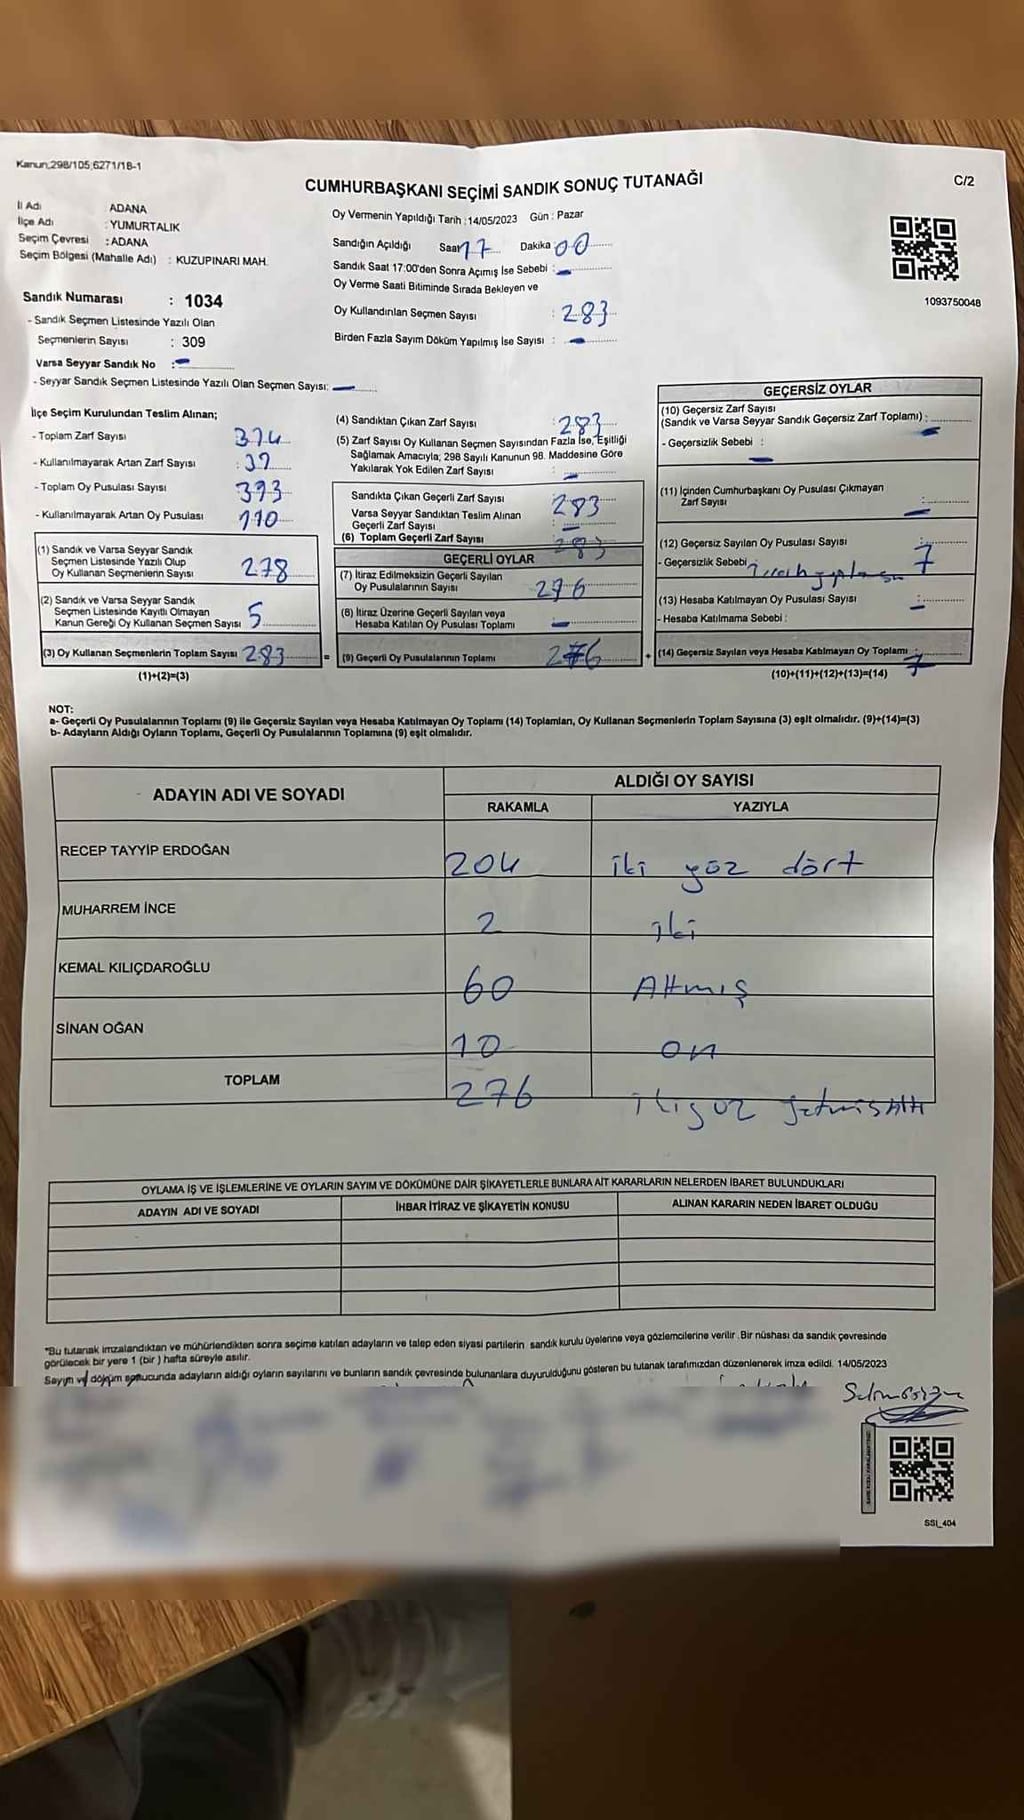 Kanun,298/105,6271/18-1
CUMHURBAŞKANI SEÇİMİ SANDIK SONUÇ TUTANAĞI
C/2
İl Adı : ADANA
İlçe Adı : YUMURTALIK
Seçim Çevresi : ADANA
Seçim Bölgesi (Mahalle Adı) : KUZUPINARI MAH.
Sandık Numarası : 1034
- Sandık Seçmen Listesinde Yazılı Olan
Seçmenlerin Sayısı : 309
Varsa Seyyar Sandık No : -
- Seyyar Sandık Seçmen Listesinde Yazılı Olan Seçmen Sayısı: -
Oy Vermenin Yapıldığı Tarih : 14/05/2023 Gün : Pazar
Sandığın Açıldığı Saat 17 Dakika 00
Sandık Saat 17:00'den Sonra Açımış İse Sebebi : -
Oy Verme Saati Bitiminde Sırada Bekleyen ve
Oy Kullandırılan Seçmen Sayısı : 283
Birden Fazla Sayım Döküm Yapılmış İse Sayısı : -
1093750048
İlçe Seçim Kurulundan Teslim Alınan;
- Toplam Zarf Sayısı
- Kullanılmayarak Artan Zarf Sayısı
- Toplam Oy Pusulası Sayısı 393
- Kullanılmayarak Artan Oy Pusulası 110
(1) Sandık ve Varsa Seyyar Sandık
Seçmen Listesinde Yazılı Olup
Oy Kullanan Seçmenlerin Sayısı 278
(2) Sandık ve Varsa Seyyar Sandık
Seçmen Listesinde Kayıtlı Olmayan
Kanun Gereği Oy Kullanan Seçmen Sayısı 5
(3) Oy Kullanan Seçmenlerin Toplam Sayısı 283
(1)+(2)=(3)
(4) Sandıktan Çıkan Zarf Sayısı : 283
(5) Zarf Sayısı Oy Kullanan Seçmen Sayısından Fazla İse, Eşitliği
Sağlamak Amacıyla; 298 Sayılı Kanunun 98. Maddesine Göre
Yakılarak Yok Edilen Zarf Sayısı : -
Sandıkta Çıkan Geçerli Zarf Sayısı 283
Varsa Seyyar Sandıktan Teslim Alınan
Geçerli Zarf Sayısı : -
(6) Toplam Geçerli Zarf Sayısı : 283
GEÇERLİ OYLAR
(7) İtiraz Edilmeksizin Geçerli Sayılan
Oy Pusulalarının Sayısı 276
(8) İtiraz Üzerine Geçerli Sayılan veya
Hesaba Katılan Oy Pusulası Toplamı : -
= (9) Geçerli Oy Pusulalarının Toplamı 276
GEÇERSİZ OYLAR
(10) Geçersiz Zarf Sayısı
(Sandık ve Varsa Seyyar Sandık Geçersiz Zarf Toplamı) : -
- Geçersizlik Sebebi : -
(11) İçinden Cumhurbaşkanı Oy Pusulası Çıkmayan
Zarf Sayısı : -
(12) Geçersiz Sayılan Oy Pusulası Sayısı : 7
- Geçersizlik Sebebi
(13) Hesaba Katılmayan Oy Pusulası Sayısı : -
- Hesaba Katılmama Sebebi :
+ (14) Geçersiz Sayılan veya Hesaba Katılmayan Oy Toplamı : 7
(10)+(11)+(12)+(13)=(14)
NOT:
a- Geçerli Oy Pusulalarının Toplamı (9) ile Geçersiz Sayılan veya Hesaba Katılmayan Oy Toplamı (14) Toplamları, Oy Kullanan Seçmenlerin Toplam Sayısına (3) eşit olmalıdır. (9)+(14)=(3)
b- Adayların Aldığı Oyların Toplamı, Geçerli Oy Pusulalarının Toplamına (9) eşit olmalıdır.
ADAYIN ADI VE SOYADI
ALDIĞI OY SAYISI
RAKAMLA YAZIYLA
RECEP TAYYİP ERDOĞAN 204 iki yüz dört
MUHARREM İNCE 2 iki
KEMAL KILIÇDAROĞLU 60 Altmış
SİNAN OĞAN 10 on
TOPLAM 276 ikiyüz yetmişaltı
OYLAMA İŞ VE İŞLEMLERİNE VE OYLARIN SAYIM VE DÖKÜMÜNE DAİR ŞİKAYETLERLE BUNLARA AİT KARARLARIN NELERDEN İBARET BULUNDUKLARI
ADAYIN ADI VE SOYADI İHBAR İTİRAZ VE ŞİKAYETİN KONUSU ALINAN KARARIN NEDEN İBARET OLDUĞU
*Bu tutanak imzalandıktan ve mühürlendikten sonra seçime katılan adayların ve talep eden siyasi partilerin sandık kurulu üyelerine veya gözlemcilerine verilir. Bir nüshası da sandık çevresinde
görülecek bir yere 1 (bir) hafta süreyle asılır.
Sayım ve döküm sonucunda adayların aldığı oyların sayılarını ve bunların sandık çevresinde bulunanlara duyurulduğunu gösteren bu tutanak tarafımızdan düzenlenerek imza edildi. 14/05/2023
SSI_404